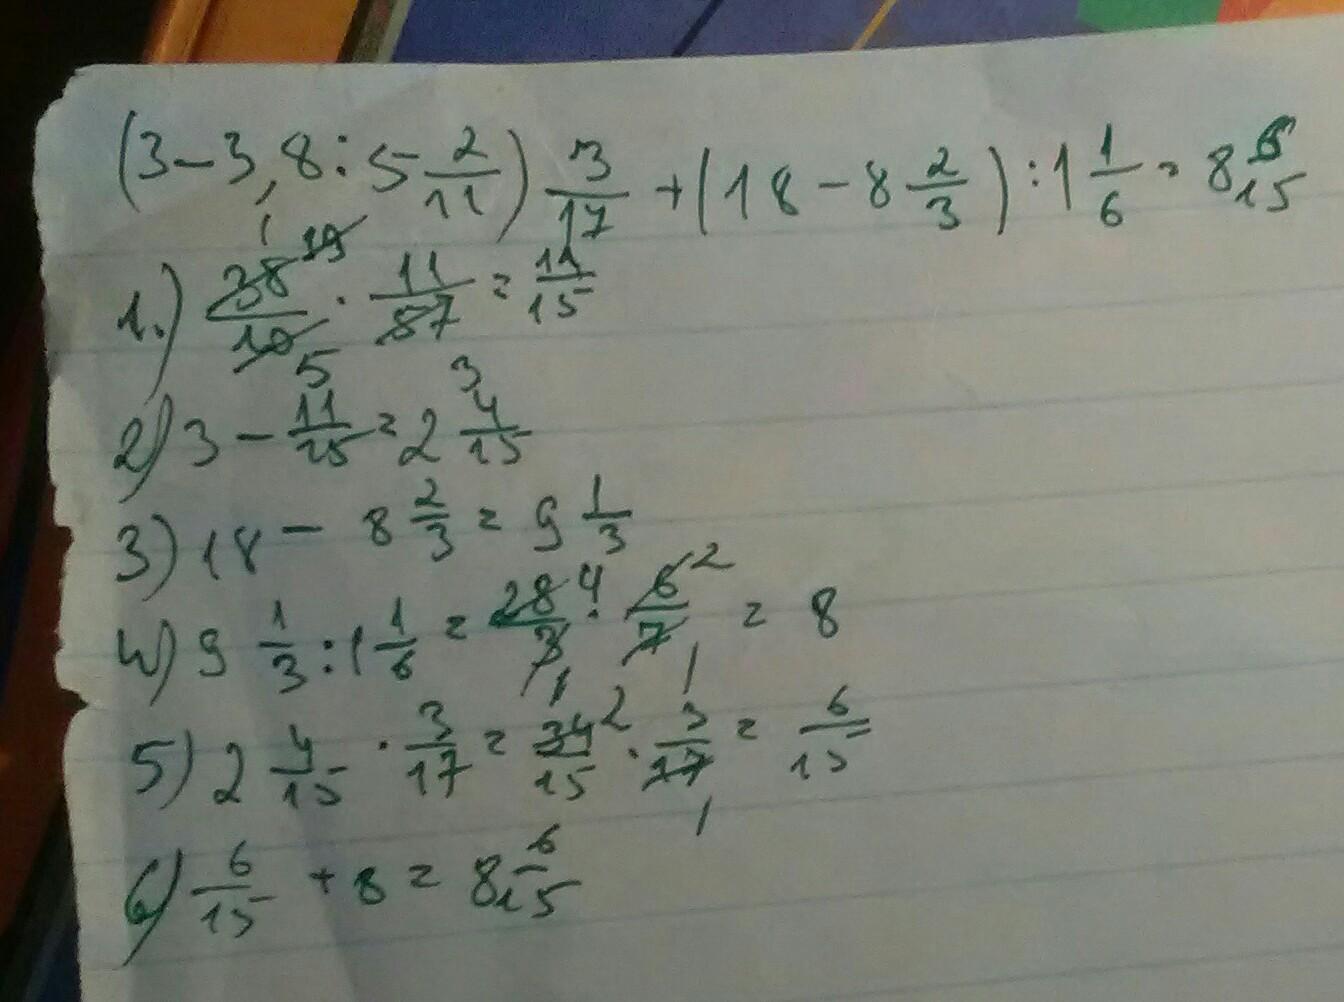 (3-3,8:5 2/11) 3/17 + (18 - 8 2/3) : 1 1/6 = 8 6/15
1.) 38/10 · 11/57 = 11/15
2) 3 - 11/15 = 2 4/15
3) 18 - 8 2/3 = 9 1/3
4) 9 1/3 : 1 1/6 = 28/3 · 6/7 = 8
5) 2 4/15 · 3/17 = 34/15 · 3/17 = 6/15
6) 6/15 + 8 = 8 6/15